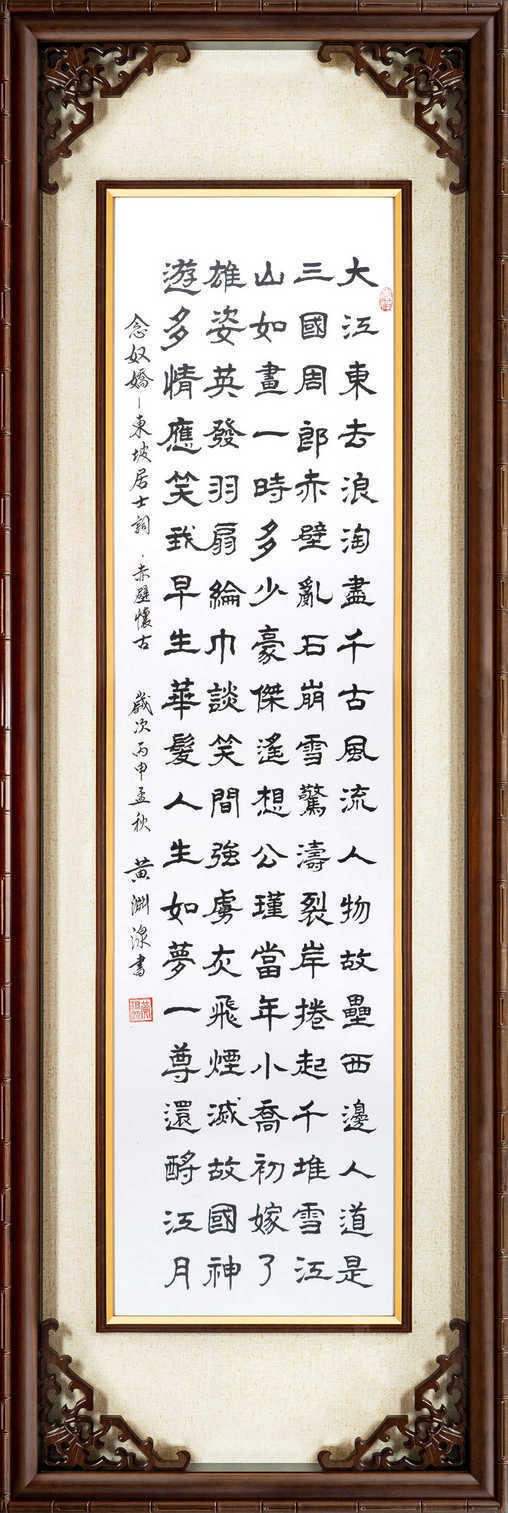 大江東去浪淘盡千古風流人物故壘西邊人道是
三國周郎赤壁亂石崩雪驚濤裂岸捲起千堆雪江
山如畫一時多少豪傑遙想公瑾當年小喬初嫁了
雄姿英發羽扇綸巾談笑間強虜灰飛煙滅故國神
遊多情應笑我早生華髮人生如夢一尊還酹江月
念奴嬌－東坡居士詞．赤壁懷古 歲次丙申孟秋 黃淵書